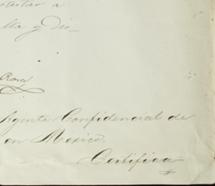 a
lla y Di
Rosa
Agente Confidencial de
en Mexico,
Certifica